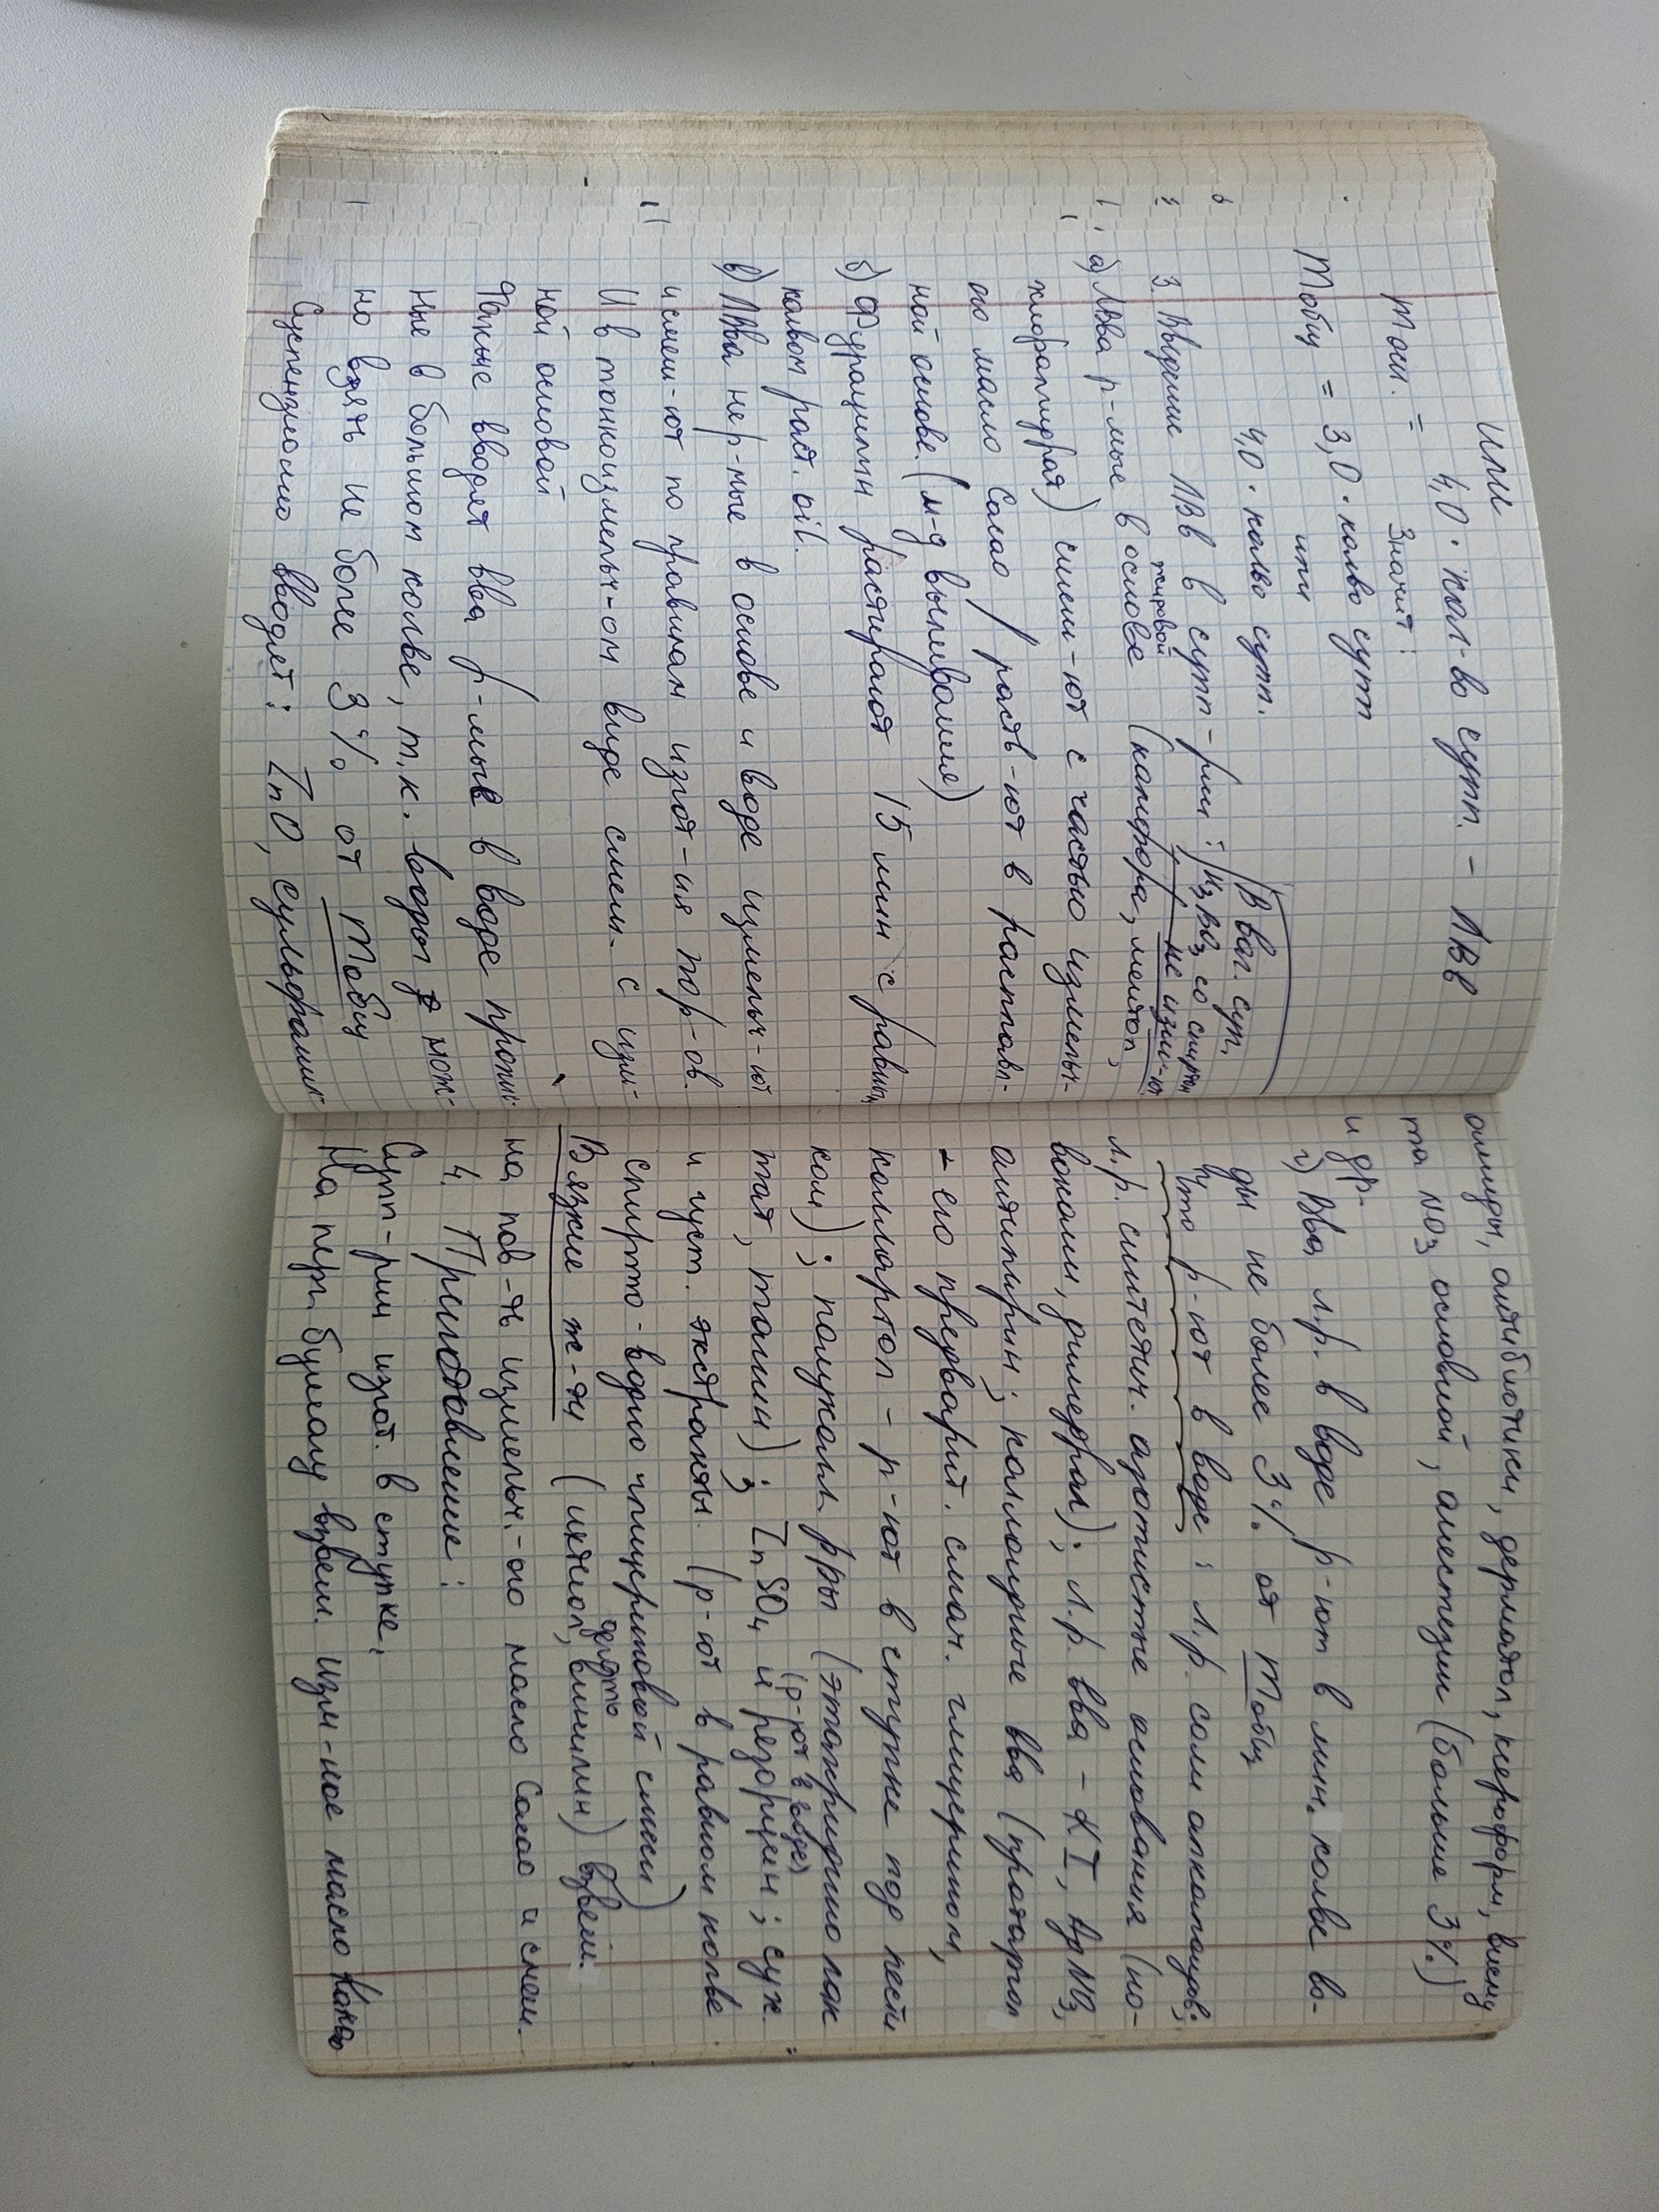 или
mосн. = 4,0 · кол-во супп. - ЛВВ
Значит:
mобщ = 3,0 · колво супп
или
4,0 · колво супп.
В ваг. суп.
3. Введение ЛВВ в супп-рии: / из ввз со спиртом
не изм-ют
а) ЛВва р-мые в жировой основе (камфора, ментол,
хлоралгидрат) смеш-ют с частью измельч-
ого масло Какао / раств-ют в расплавл-
ной основе. (м-д выливания)
б) Фурацилин растирают 15 мин с равным
колвом раст. oil.
в) ЛВва нер-мые в основе и воде измельч-ют
и смеш-ют по правилам изгот-ия пор-ов.
И в тонкоизмельч-ом виде смеш. с изм-
ной основой
Также вводят вва р-мые в воде пропис-
ные в большом колве, т.к. воды мож-
но взять не более 3% от mобщ
Суспензионно вводят: ZnO, сульфанил-
амиды, антибиотики, дерматол, ксероформ, висму
та NO3 основной, анестезин (больше 3%)
и др.
г) Вва л.р. в воде р-ют в мин. колве во-
ды не более 3% от mобщ
Что р-ют в воде: л.р. соли алкалоидов;
л.р. синтетич. азотистые основания (но-
вокаин, димедрол); л.р. вва - KI, AgNO3,
антипирин; коллоидные вва (протаргол
- его предварит. смач. глицерином,
колларгол - р-ют в ступке под пести
ком); полуколл. рры (этакридина лак
тат, танин); ZnSO4 и резорцин (р-ют в воде); сух.
и густ. экстракты. (р-ют в равном колве
спирто-водно-глицериновой смеси)
Вязкие ж-ти (ихтиол, дегдто винилин) взвеш.
на пов-ть измельч.-ого масло Какао и смеш.
4. Приготовление:
Супп-рии изгот. в ступке:
На перг. бумагу взвеш. изм-ное масло какао